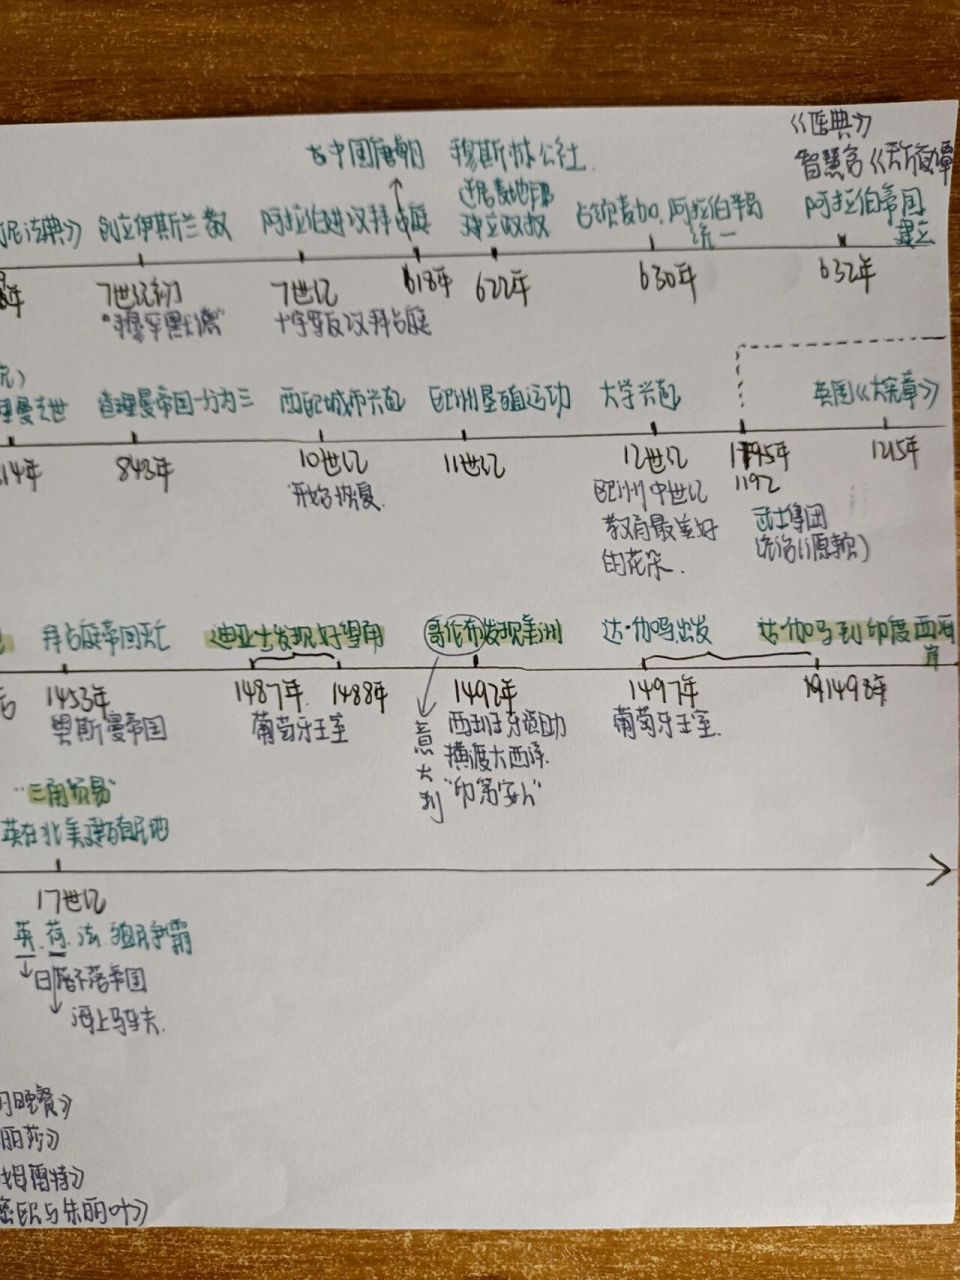 《医典》
古中国唐朝 穆斯林公社
智慧宫《天方夜谭
民法典》 创立伊斯兰教 阿拉伯进攻拜占庭 建立政权 占领麦加,阿拉伯半岛统一 阿拉伯帝国建立
年 7世纪初 7世纪 618年 622年 630年 632年
"穆罕默德" 十字军反攻拜占庭
理曼去世 查理曼帝国一分为三 西欧城市兴起 欧洲垦殖运动 大学兴起 英国《大宪章》
14年 843年 10世纪 11世纪 12世纪 1195年 1215年
1192
开始恢复 欧洲中世纪 武士集团
教育最美好 统治(源赖)
的花朵.
拜占庭帝国灭亡 迪亚士发现好望角 哥伦布发现美洲 达·伽马出发 达·伽马到印度西海岸
1453年 1487年 1488年 1492年 1497年 1498年
奥斯曼帝国 葡萄牙王室 意大利 西班牙资助 葡萄牙王室.
横渡大西洋.
"印第安人"
"三角贸易"
英在北美建殖民地
17世纪
英.荷.法.殖民争霸
日不落帝国
海上马车夫.
的晚餐》
丽莎》
姆雷特》
密欧与朱丽叶》